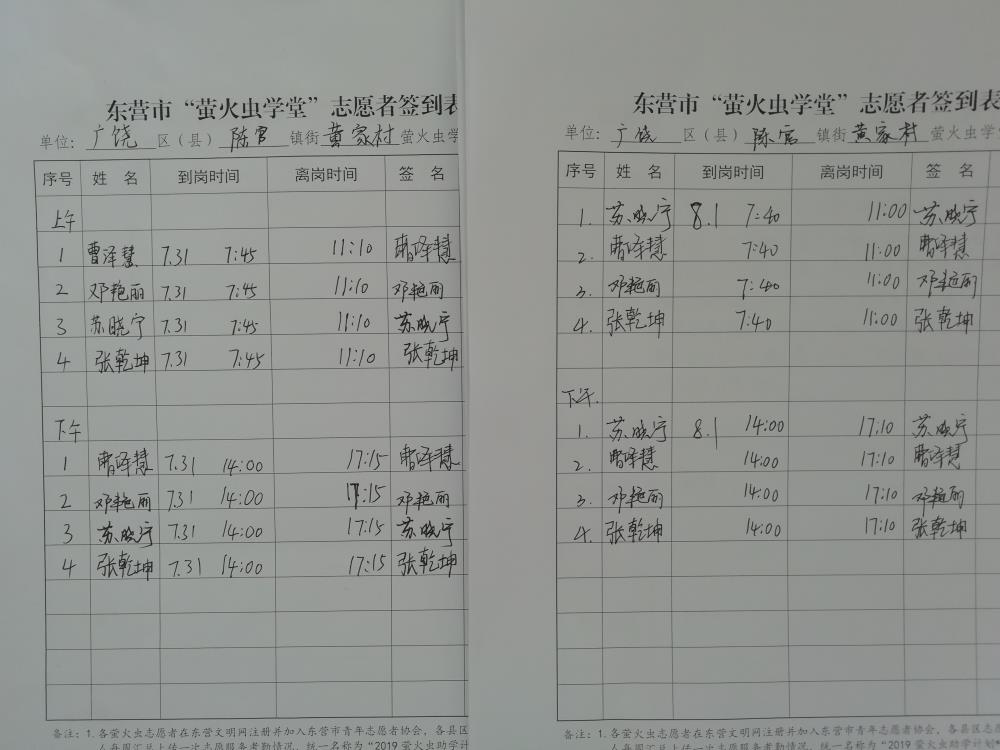 东营市“萤火虫学堂”志愿者签到表
单位：广饶区（县）陈官镇街黄家村萤火虫学
序号 姓名 到岗时间 离岗时间 签名
上午
1 曹泽慧 7.31 7:45 11:10 曹泽慧
2 邓艳丽 7.31 7:45 11:10 邓艳丽
3 苏晓宁 7.31 7:45 11:10 苏晓宁
4 张乾坤 7.31 7:45 11:10 张乾坤
下午
1 曹泽慧 7.31 14:00 17:15 曹泽慧
2 邓艳丽 7.31 14:00 17:15 邓艳丽
3 苏晓宁 7.31 14:00 17:15 苏晓宁
4 张乾坤 7.31 14:00 17:15 张乾坤
备注：1.各萤火虫志愿者在东营文明网注册并加入东营市青年志愿者协会，各县区
人每周汇总上传一次志愿服务考勤情况，统一名称为“2019萤火虫助学计
东营市“萤火虫学堂”志愿者签到表
单位：广饶区（县）陈官镇街黄家村萤火虫学
序号 姓名 到岗时间 离岗时间 签名
1. 苏晓宁 8.1 7:40 11:00 苏晓宁
2. 曹泽慧 7:40 11:00 曹泽慧
3. 邓艳丽 7:40 11:00 邓艳丽
4. 张乾坤 7:40 11:00 张乾坤
下午.
1. 苏晓宁 8.1 14:00 17:10 苏晓宁
2. 曹泽慧 14:00 17:10 曹泽慧
3. 邓艳丽 14:00 17:10 邓艳丽
4. 张乾坤 14:00 17:10 张乾坤
备注：1.各萤火虫志愿者在东营文明网注册并加入东营市青年志愿者协会，各县区
人每周汇总上传一次志愿服务考勤情况，统一名称为“2019萤火虫助学计